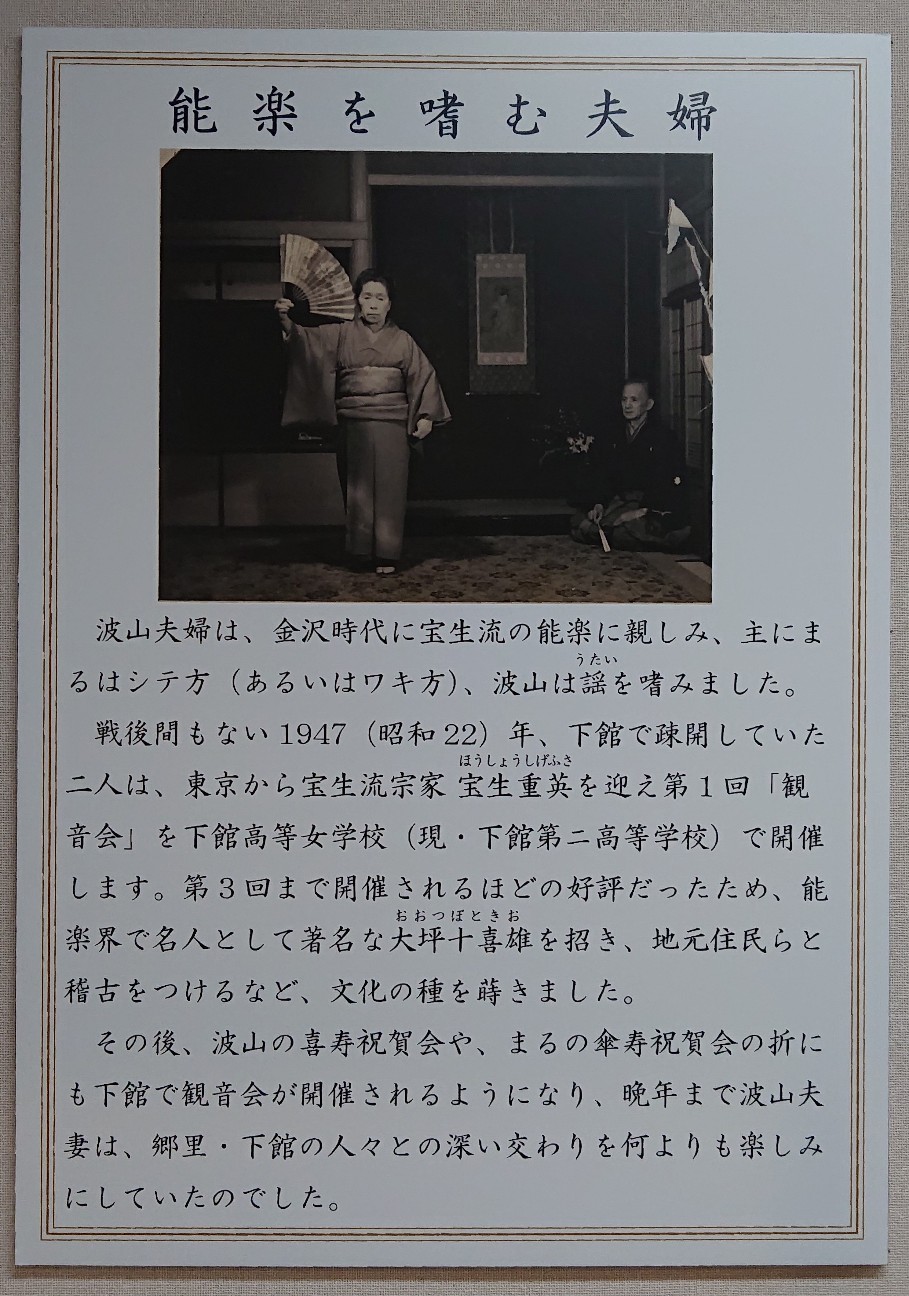 能楽を嗜む夫婦
波山夫婦は、金沢時代に宝生流の能楽に親しみ、主にま
うたい
るはシテ方（あるいはワキ方）、波山は謡を嗜みました。
戦後間もない1947（昭和22）年、下館で疎開していた
ほうしょうしげふさ
二人は、東京から宝生流宗家 宝生重英を迎え第1回「観
音会」を下館高等女学校（現・下館第二高等学校）で開催
します。第3回まで開催されるほどの好評だったため、能
おおつぼときお
楽界で名人として著名な大坪十喜雄を招き、地元住民らと
稽古をつけるなど、文化の種を蒔きました。
その後、波山の喜寿祝賀会や、まるの傘寿祝賀会の折に
も下館で観音会が開催されるようになり、晩年まで波山夫
妻は、郷里・下館の人々との深い交わりを何よりも楽しみ
にしていたのでした。